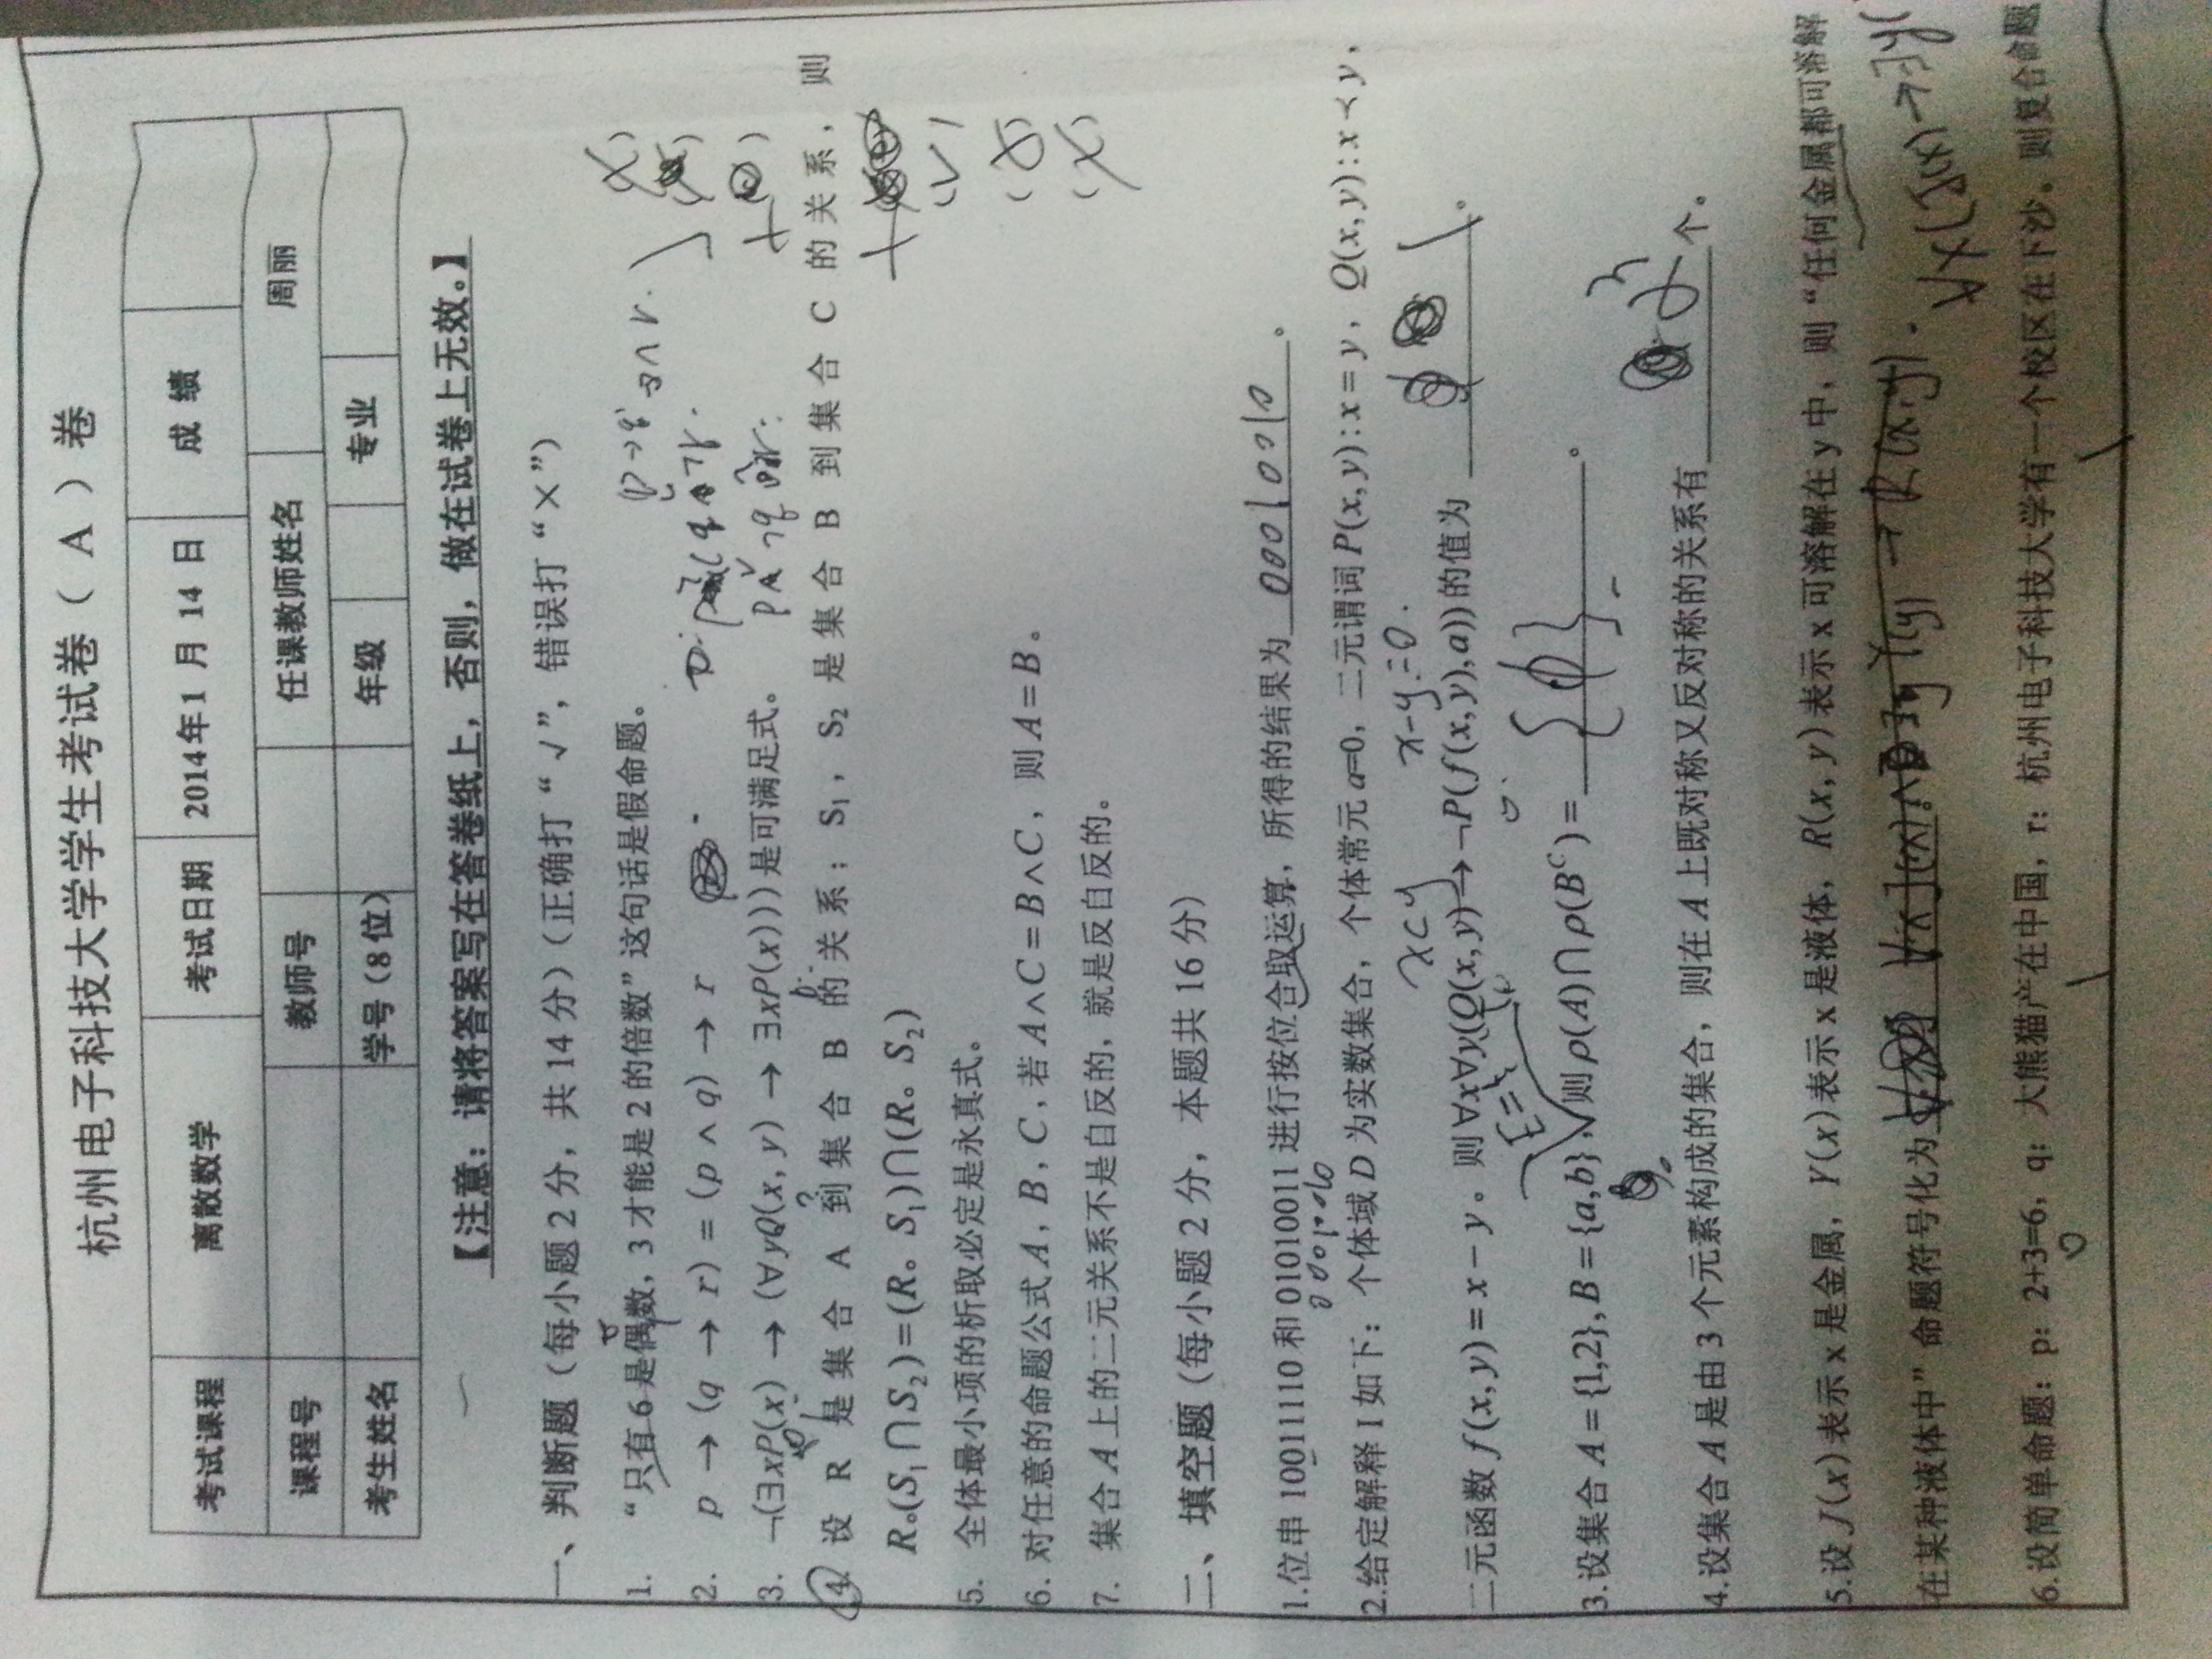 杭州电子科技大学学生考试卷（ A ）卷
考试课程 离散数学 考试日期 2014年1 月 14 日 成 绩
课程号 教师号 任课教师姓名 周丽
考生姓名 学号（8位） 年级 专业
【注意：请将答案写在答卷纸上，否则，做在试卷上无效。】
一、判断题（每小题2分，共14分）（正确打“√”，错误打“×”）
1. “只有6是偶数，3才能是2的倍数”这句话是假命题。
2. p → (q → r) = (p ∧ q) → r
3. ¬(∃xP(x) → (∀yQ(x, y) → ∃xP(x))) 是可满足式。
4. 设 R 是集合 A 到集合 B 的关系；S₁，S₂ 是集合 B 到集合 C 的关系，则
R∘(S₁∩S₂)=(R∘ S₁)∩(R∘ S₂)
5. 全体最小项的析取必定是永真式。
(√)
6. 对任意的命题公式 A，B，C，若 A∧C = B∧C，则 A = B。
7. 集合 A 上的二元关系不是自反的，就是反自反的。
(×)
二、填空题（每小题2分，本题共16分）
1.位串 10011110 和 01010011 进行按位合取运算，所得的结果为 00010010 。
2.给定解释 I 如下：个体域 D 为实数集合，个体常元 a=0，二元谓词 P(x, y): x = y，Q(x, y): x ≺ y，
x<y x-y=0.
二元函数 f(x, y) = x − y。则∀x∀y(Q(x, y) → ¬P(f(x, y), a)) 的值为 1 。
3.设集合 A = {1,2}, B = {a,b}，则 ρ(A)∩ρ(Bᶜ) = {φ} 。
4.设集合 A 是由 3 个元素构成的集合，则在 A 上既对称又反对称的关系有 2³ 个。
5.设 J(x) 表示 x 是金属，Y(x) 表示 x 是液体，R(x, y) 表示 x 可溶解在 y 中，则“任何金属都可溶解
在某种液体中”命题符号化为 ∀x(J(x)→∃y(
6.设简单命题：p：2+3=6，q：大熊猫产在中国，r：杭州电子科技大学有一个校区在下沙。则复合命题
0 1 1